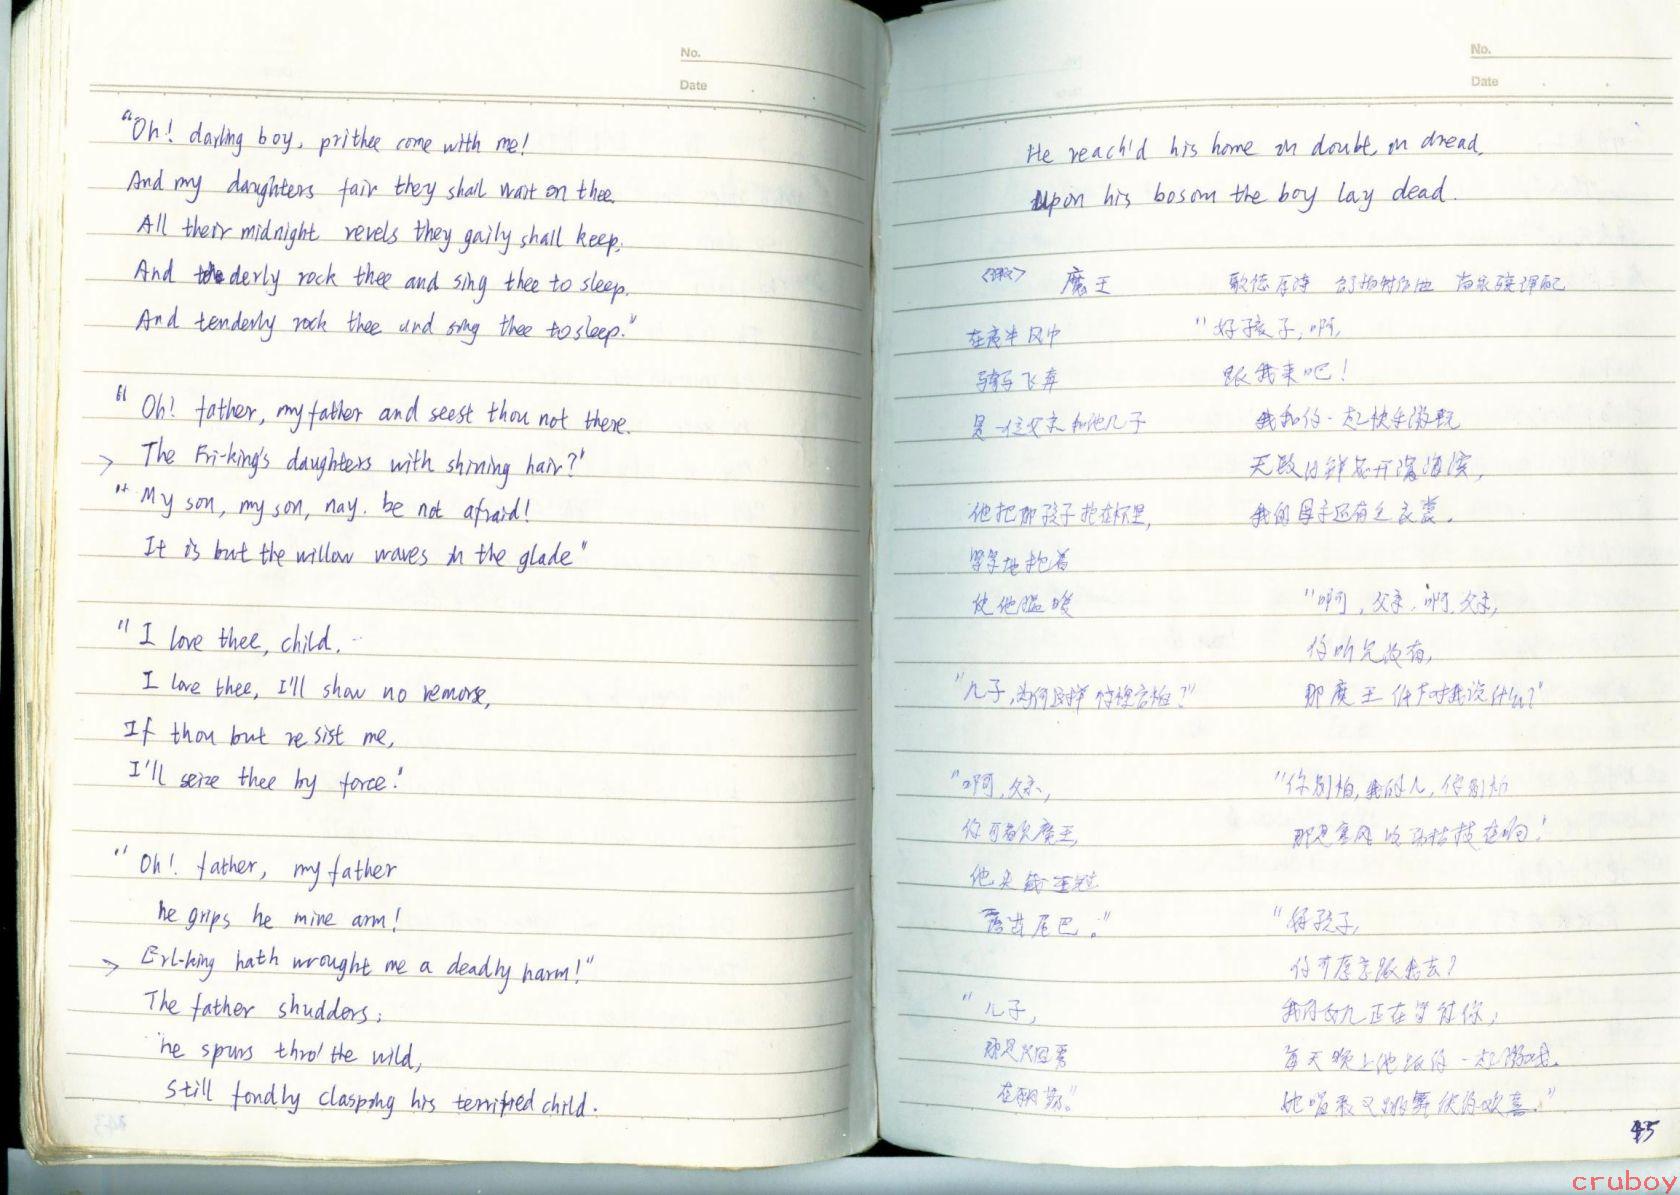 No.
Date
"Oh! darling boy, prithee come with me!
And my daughters fair they shall wait on thee.
All their midnight revels they gaily shall keep,
And derly rock thee and sing thee to sleep.
And tenderly rock thee and sing thee to sleep."
"Oh! father, my father and seest thou not there.
The Erl-king's daughters with shining hair?"
"My son, my son, nay. be not afraid!
It is but the willow waves in the glade"
"I love thee, child.
I love thee, I'll show no remorse,
If thou but resist me,
I'll seize thee by force."
"Oh! father, my father
he grips he mine arm!
Erl-king hath wrought me a deadly harm!"
The father shudders;
he spurs thro' the wild,
Still fondly clasping his terrified child.
No.
Date
He reach'd his home in doubt in dread,
Upon his bosom the boy lay dead.
魔王 歌德 舒柏特作曲 尚家骧译配
在夜半风中
骑马飞奔
是一位父亲和他儿子
他把那孩子抱在怀里,
紧紧地抱着
使他温暖
"儿子,为何这样惊惶害怕?"
"啊,父亲,
你可看见魔王,
他头戴王冠
露出尾巴。"
"儿子,
那是烟雾
"好孩子,啊,
跟我来吧!
我和你一起快乐游玩
无数的鲜花开满海滨,
我的母亲还有金衣裳.
"啊,父亲,啊,父亲,
你听见没有,
那魔王低声对我说什么?"
"你别怕,我的儿,你别怕
那是寒风吹动枯枝在响!
"好孩子,
你可愿意跟我去?
我的女儿正在等待你,
每天晚上她跟你一起游戏.
她唱歌又跳舞使你欢喜."
45
cruboy